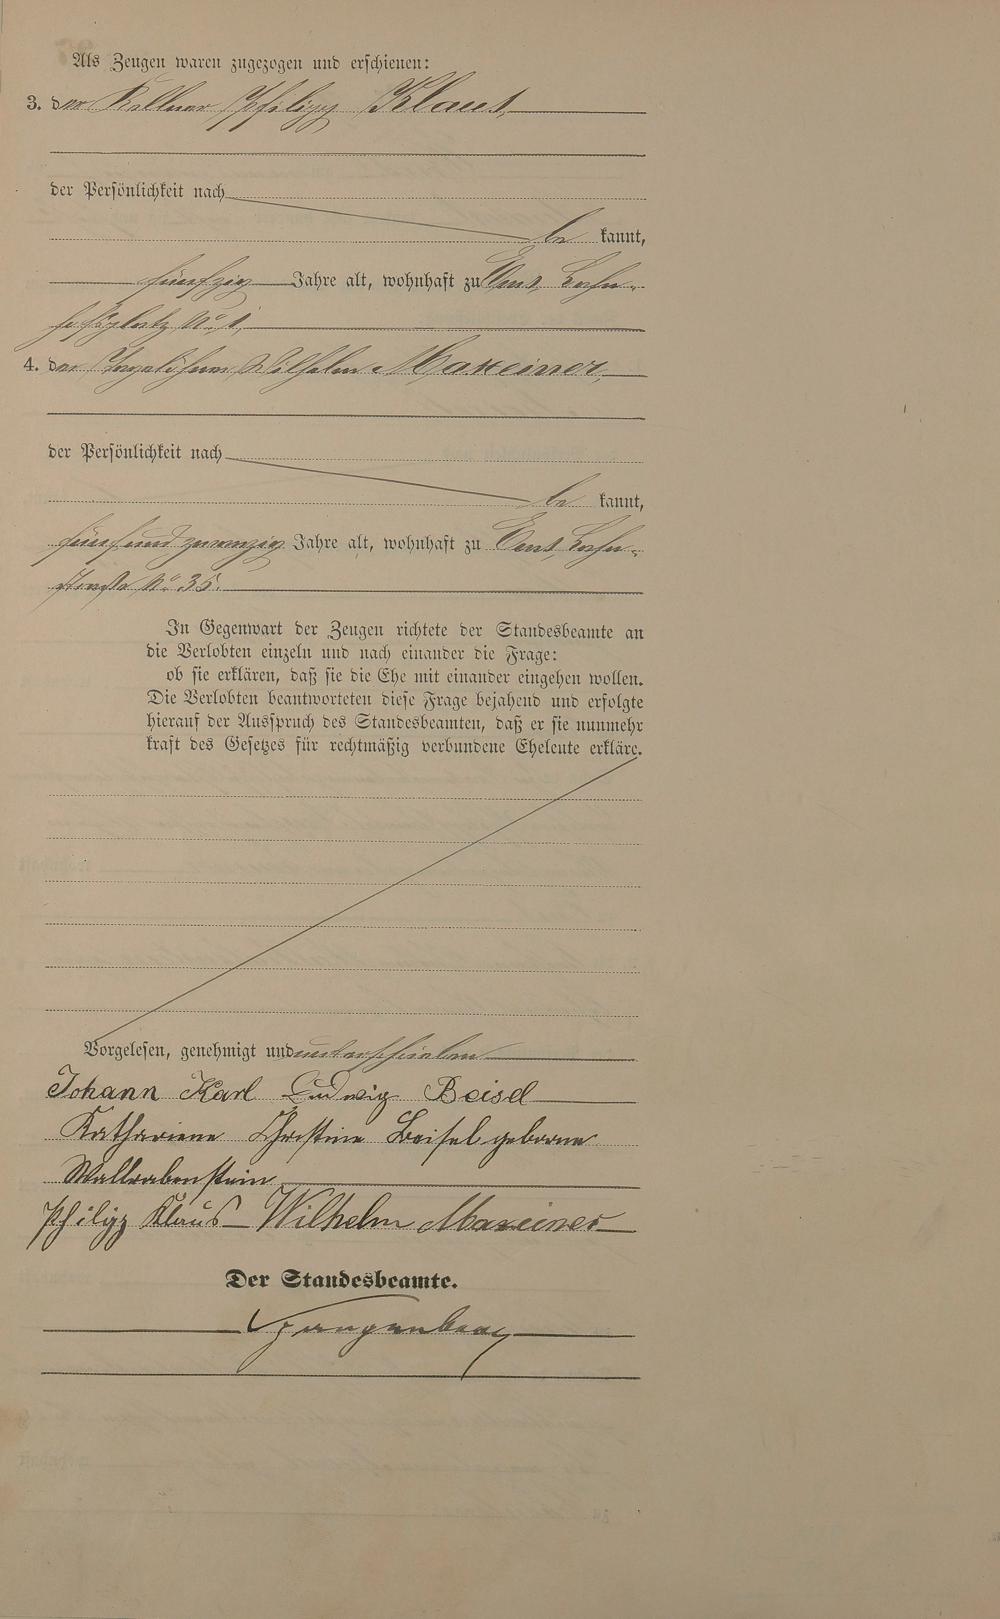 Als Zeugen waren zugezogen und erschienen:
3. der Kellner Philipp Klaus,
der Persönlichkeit nach
be kannt,
fünfzig Jahre alt, wohnhaft zu Ems, Bahn-
hofsplatz No. 1,
4. der Wilhelm Maxeiner,
der Persönlichkeit nach
be kannt,
fünfundzwanzig Jahre alt, wohnhaft zu Ems, Bahn-
straße No. 35.
In Gegenwart der Zeugen richtete der Standesbeamte an
die Verlobten einzeln und nach einander die Frage:
ob sie erklären, daß sie die Ehe mit einander eingehen wollen.
Die Verlobten beantworteten diese Frage bejahend und erfolgte
hierauf der Ausspruch des Standesbeamten, daß er sie nunmehr
kraft des Gesetzes für rechtmäßig verbundene Eheleute erkläre.
Vorgelesen, genehmigt und unterschrieben
Johann Karl Ludwig Beisel
Kathariene Christine Beisel geborne
Wallrabenstein
Philipp Klaus Wilhelm Maxeiner
Der Standesbeamte.
Spangenberg